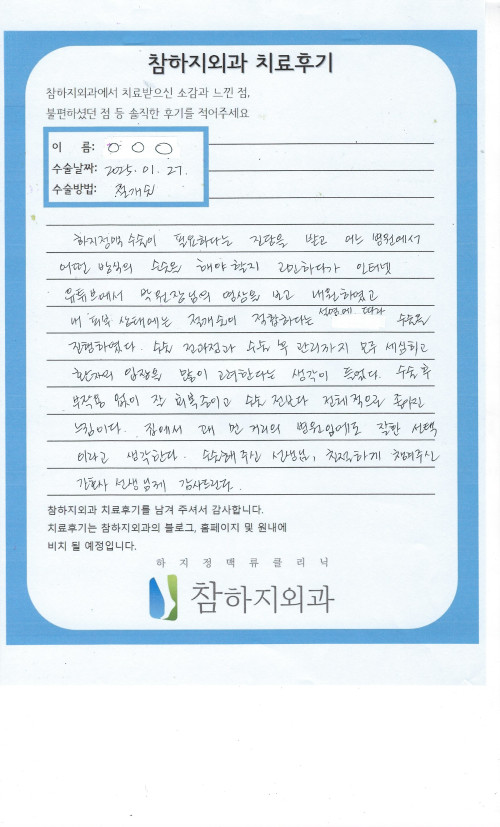 참하지외과 치료후기
참하지외과에서 치료받으신 소감과 느낀 점,
불편하셨던 점 등 솔직한 후기를 적어주세요
이 름: ○ ○ ○
수술날짜: 2025. 01. 27.
수술방법: 절개술
하지정맥 수술이 필요하다는 진단을 받고 어느 병원에서
어떤 방식의 수술을 해야할지 고민하다가 인터넷
유튜브에서 박원장님의 영상을 보고 내원하였고
내 피부 상태에는 절개술이 적합하다는 설명에 따라 수술을
진행하였다. 수술 전과정과 수술 후 관리까지 모두 세심하고
환자의 입장을 많이 고려한다는 생각이 들었다. 수술 후
부작용 없이 잘 회복중이고 수술 전보다 전체적으로 좋아진
느낌이다. 집에서 꽤 먼 거리의 병원임에도 잘한 선택
이라고 생각한다. 수술해 주신 선생님, 친절하게 챙겨주신
간호사 선생님께 감사드린다.
참하지외과 치료후기를 남겨 주셔서 감사합니다.
치료후기는 참하지외과의 블로그, 홈페이지 및 원내에
비치 될 예정입니다.
하지정맥류클리닉
참하지외과